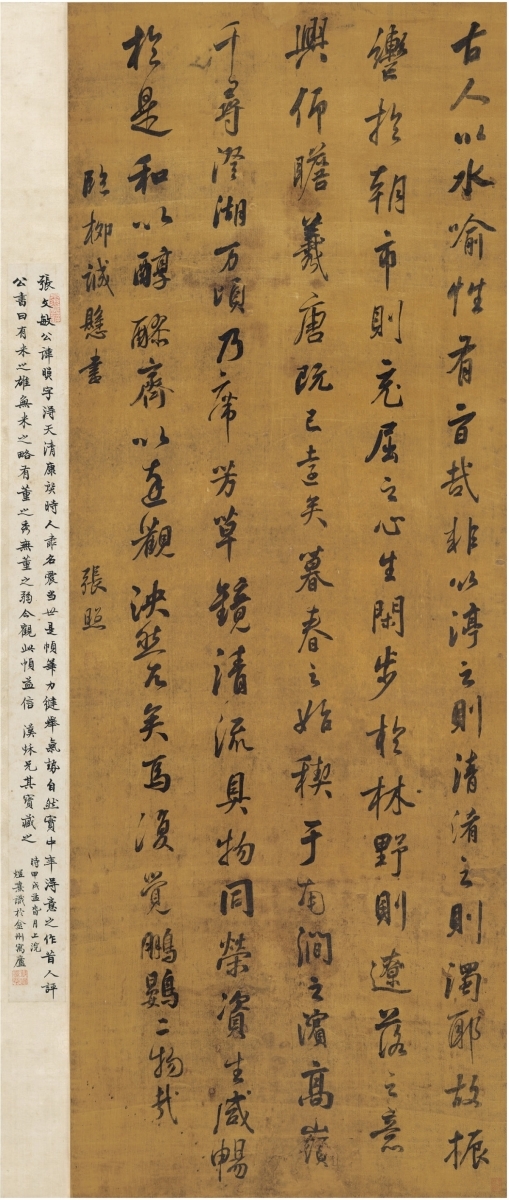 古人以水喻性有旨哉非以渟之則清淆之則濁耶故振
轡於朝市則充屈之心生閑步於林野則遼落之意
興仰瞻羲唐既已遠矣暮春之始禊于南澗之濱高嶺
千尋澄湖万頃乃席芳草鏡清流具物同榮資生咸暢
於是和以醇醪齊以達觀泱然兀矣焉復覺鵬鷃二物哉
臨柳誠懸書
張照
張文敏公諱照字得天清康熙時人書名震當世是幀筆力健舉氣勢自然實中年得意之作昔人評
公書曰有米之雄無米之略有董之秀無董之弱今觀此幀益信 溪 兄其寶藏之
時甲戌 月上浣
識於 州寓廬